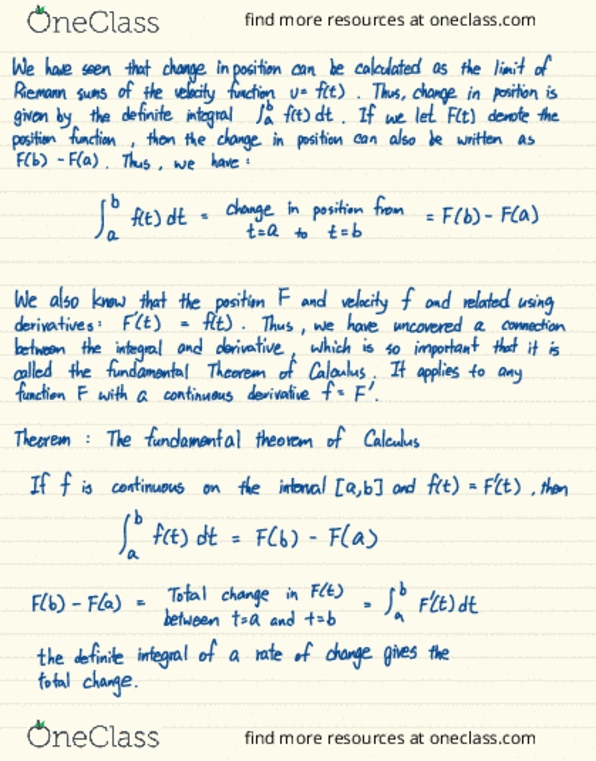 OneClass find more resources at oneclass.com
We have seen that change in position can be calculated as the limit of
Riemann sums of the velocity function v= f(t). Thus, change in position is
given by the definite integral ∫ₐᵇ f(t) dt. If we let F(t) denote the
position function, then the change in position can also be written as
F(b) - F(a). Thus, we have:
∫ₐᵇ f(t) dt = change in position from t=a to t=b = F(b) - F(a)
We also know that the position F and velocity f and related using
derivatives: F'(t) = f(t). Thus, we have uncovered a connection
between the integral and derivative, which is so important that it is
called the fundamental Theorem of Calculus. It applies to any
function F with a continuous derivative f= F'.
Theorem : The fundamental theorem of Calculus
If f is continuous on the interval [a,b] and f(t) = F'(t), then
∫ₐᵇ f(t) dt = F(b) - F(a)
F(b) - F(a) = Total change in F(t) between t=a and t=b = ∫ₐᵇ F'(t) dt
the definite integral of a rate of change gives the
total change.
OneClass find more resources at oneclass.com